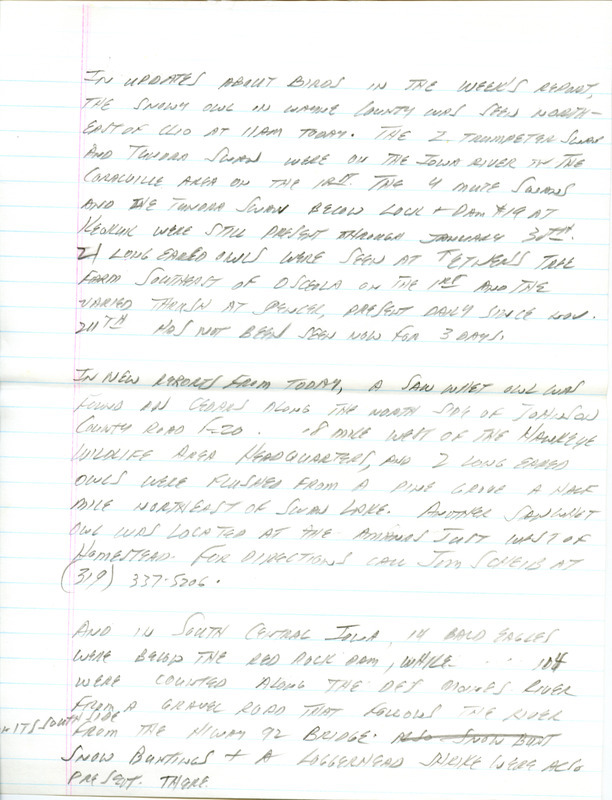 IN UPDATES ABOUT BIRDS IN THE WEEK'S REPORT,
THE SNOWY OWL IN WAYNE COUNTY WAS SEEN NORTH-
EAST OF CLIO AT 11AM TODAY. THE 2 TRUMPETER SWAN
AND TUNDRA SWAN WERE ON THE IOWA RIVER IN THE
CORALVILLE AREA ON THE 1RST. THE 4 MUTE SWANS
AND THE TUNDRA SWAN BELOW LOCK + DAM #19 AT
KEOKUK WERE STILL PRESENT THROUGH JANUARY 30TH.
LONG EARED OWLS WERE SEEN AT TREE
FARM SOUTHEAST OF OSCEOLA ON THE 1RST AND THE
VARIED THRUSH AT SPENCER, PRESENT DAILY SINCE NOV.
HAS NOT BEEN SEEN NOW FOR 3 DAYS.
IN NEW REPORTS FROM TODAY, A SAW WHET OWL WAS
FOUND IN CEDARS ALONG THE NORTH SIDE OF JOHNSON
COUNTY ROAD F-20. .8 MILE WEST OF THE HAWKEYE
WILDLIFE AREA HEADQUARTERS, AND 2 LONG EARED
OWLS WERE FLUSHED FROM A PINE GROVE A HALF
MILE NORTHEAST OF SWAN LAKE. ANOTHER SAW WHET
OWL WAS LOCATED AT THE AMANAS JUST WEST OF
HOMESTEAD. FOR DIRECTIONS CALL JIM SCHEIB AT
(319) 337-5206.
AND IN SOUTH CENTRAL IOWA, 14 BALD EAGLES
WERE BELOW THE RED ROCK DAM, WHILE 104
WERE COUNTED ALONG THE DES MOINES RIVER
FROM A GRAVEL ROAD THAT FOLLOWS THE RIVER
ITS SOUTH SIDE
FROM THE HIWAY 92 BRIDGE. ALSO SNOW BUNT
SNOW BUNTINGS + A LOGGERHEAD SHRIKE WERE ALSO
PRESENT THERE.